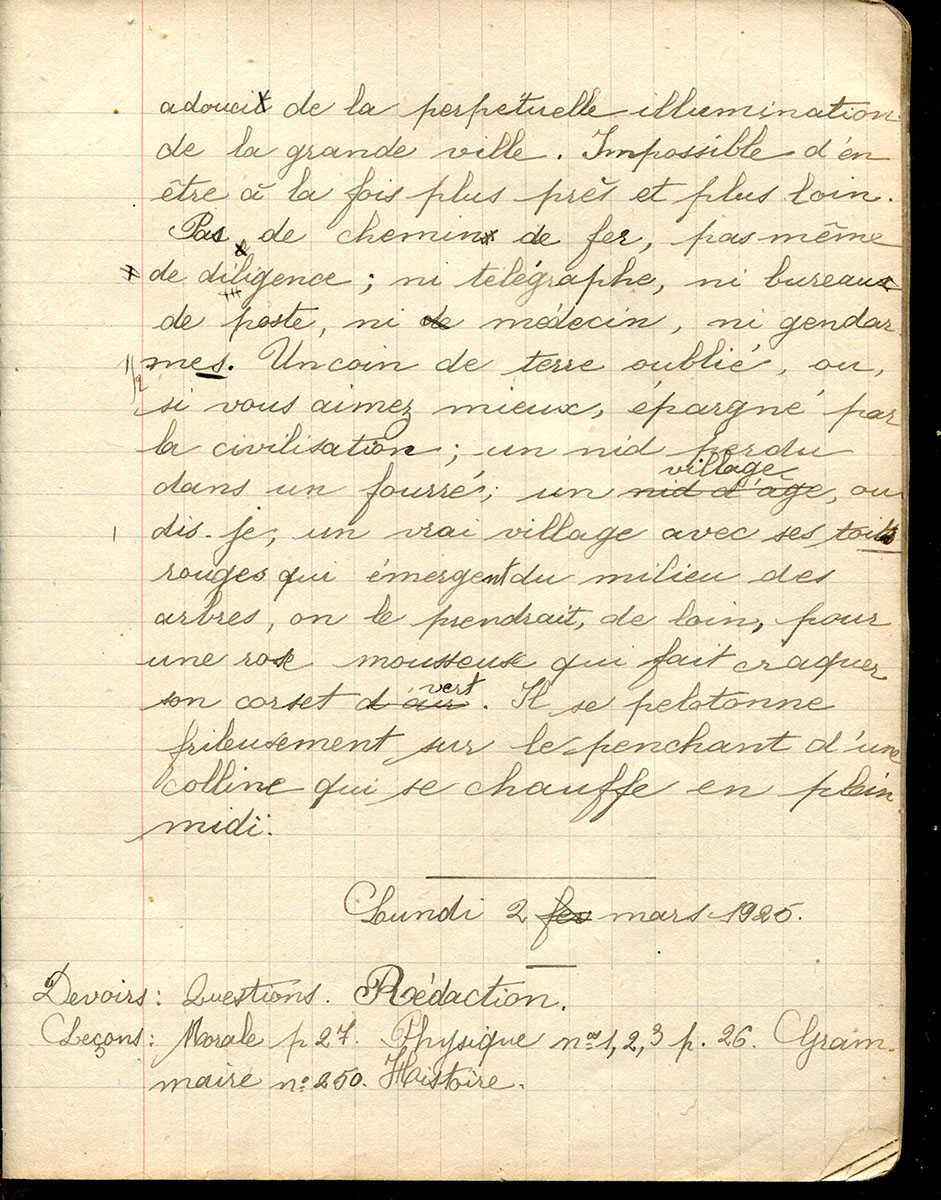 adoucit de la perpétuelle illumination
de la grande ville. Impossible d'en
être à la fois plus près et plus loin.
Pas de chemins de fer, pas même
de diligence ; ni télégraphe, ni bureaux
de poste, ni de médecin, ni gendar-
mes. Un coin de terre oublié, ou,
si vous aimez mieux, épargné par
la civilisation ; un nid perdu
village
dans un fourré, un nid d'âge, ou
dis-je, un vrai village avec ses toits
rouges qui émergent du milieu des
arbres, on le prendrait, de loin, pour
une rose mousseuse qui fait craquer
vert
son corset d'air. Il se pelotonne
frileusement sur le penchant d'une
colline qui se chauffe en plein
midi.
Lundi 2 fev mars 1925.
Devoirs : Questions. Rédaction.
Leçons : Morale p 27. Physique nos 1, 2, 3 p. 26. Gram-
maire no 250. Histoire.